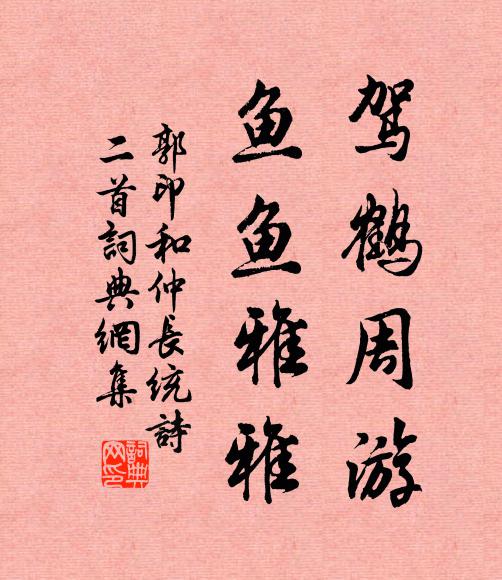 驾鹤周游
鱼鱼雅雅
郭印和仲長統詩
二首詞典網集
詞典
网印